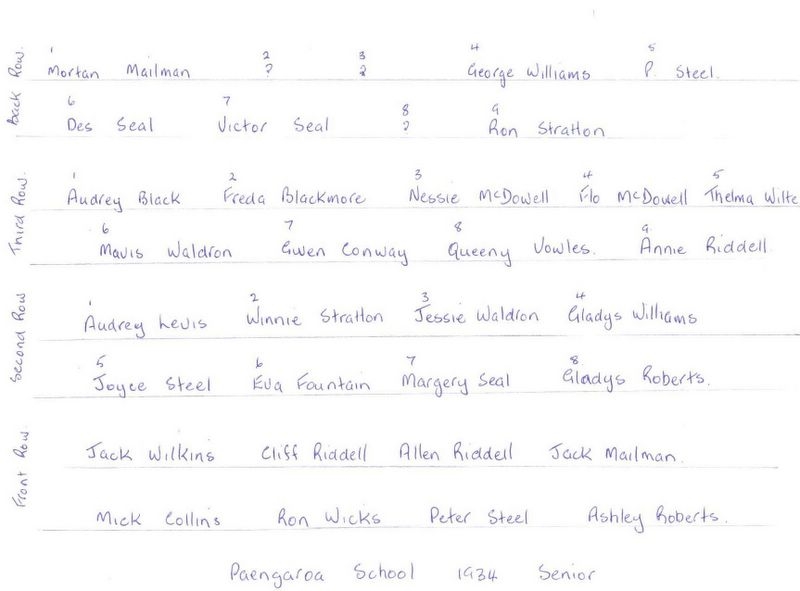 Back Row.
1 2 3 4 5
Mortan Mailman ? ? George Williams P. Steel.
6 7 8 9
Des Seal Victor Seal ? Ron Stratton
Third Row.
1 2 3 4 5
Audrey Black Freda Blackmore Nessie McDowell Flo McDowell Thelma Wilte
6 7 8 9.
Mavis Waldron Gwen Conway Queeny Vowles. Annie Riddell
Second Row
1 2 3 4
Audrey Levis Winnie Stratton Jessie Waldron Gladys Williams
5 6 7 8
Joyce Steel Eva Fountain Margery Seal Gladys Roberts.
Front Row
Jack Wilkins Cliff Riddell Allen Riddell Jack Mailman.
Mick Collins Ron Wicks Peter Steel Ashley Roberts.
Paengaroa School 1934 Senior